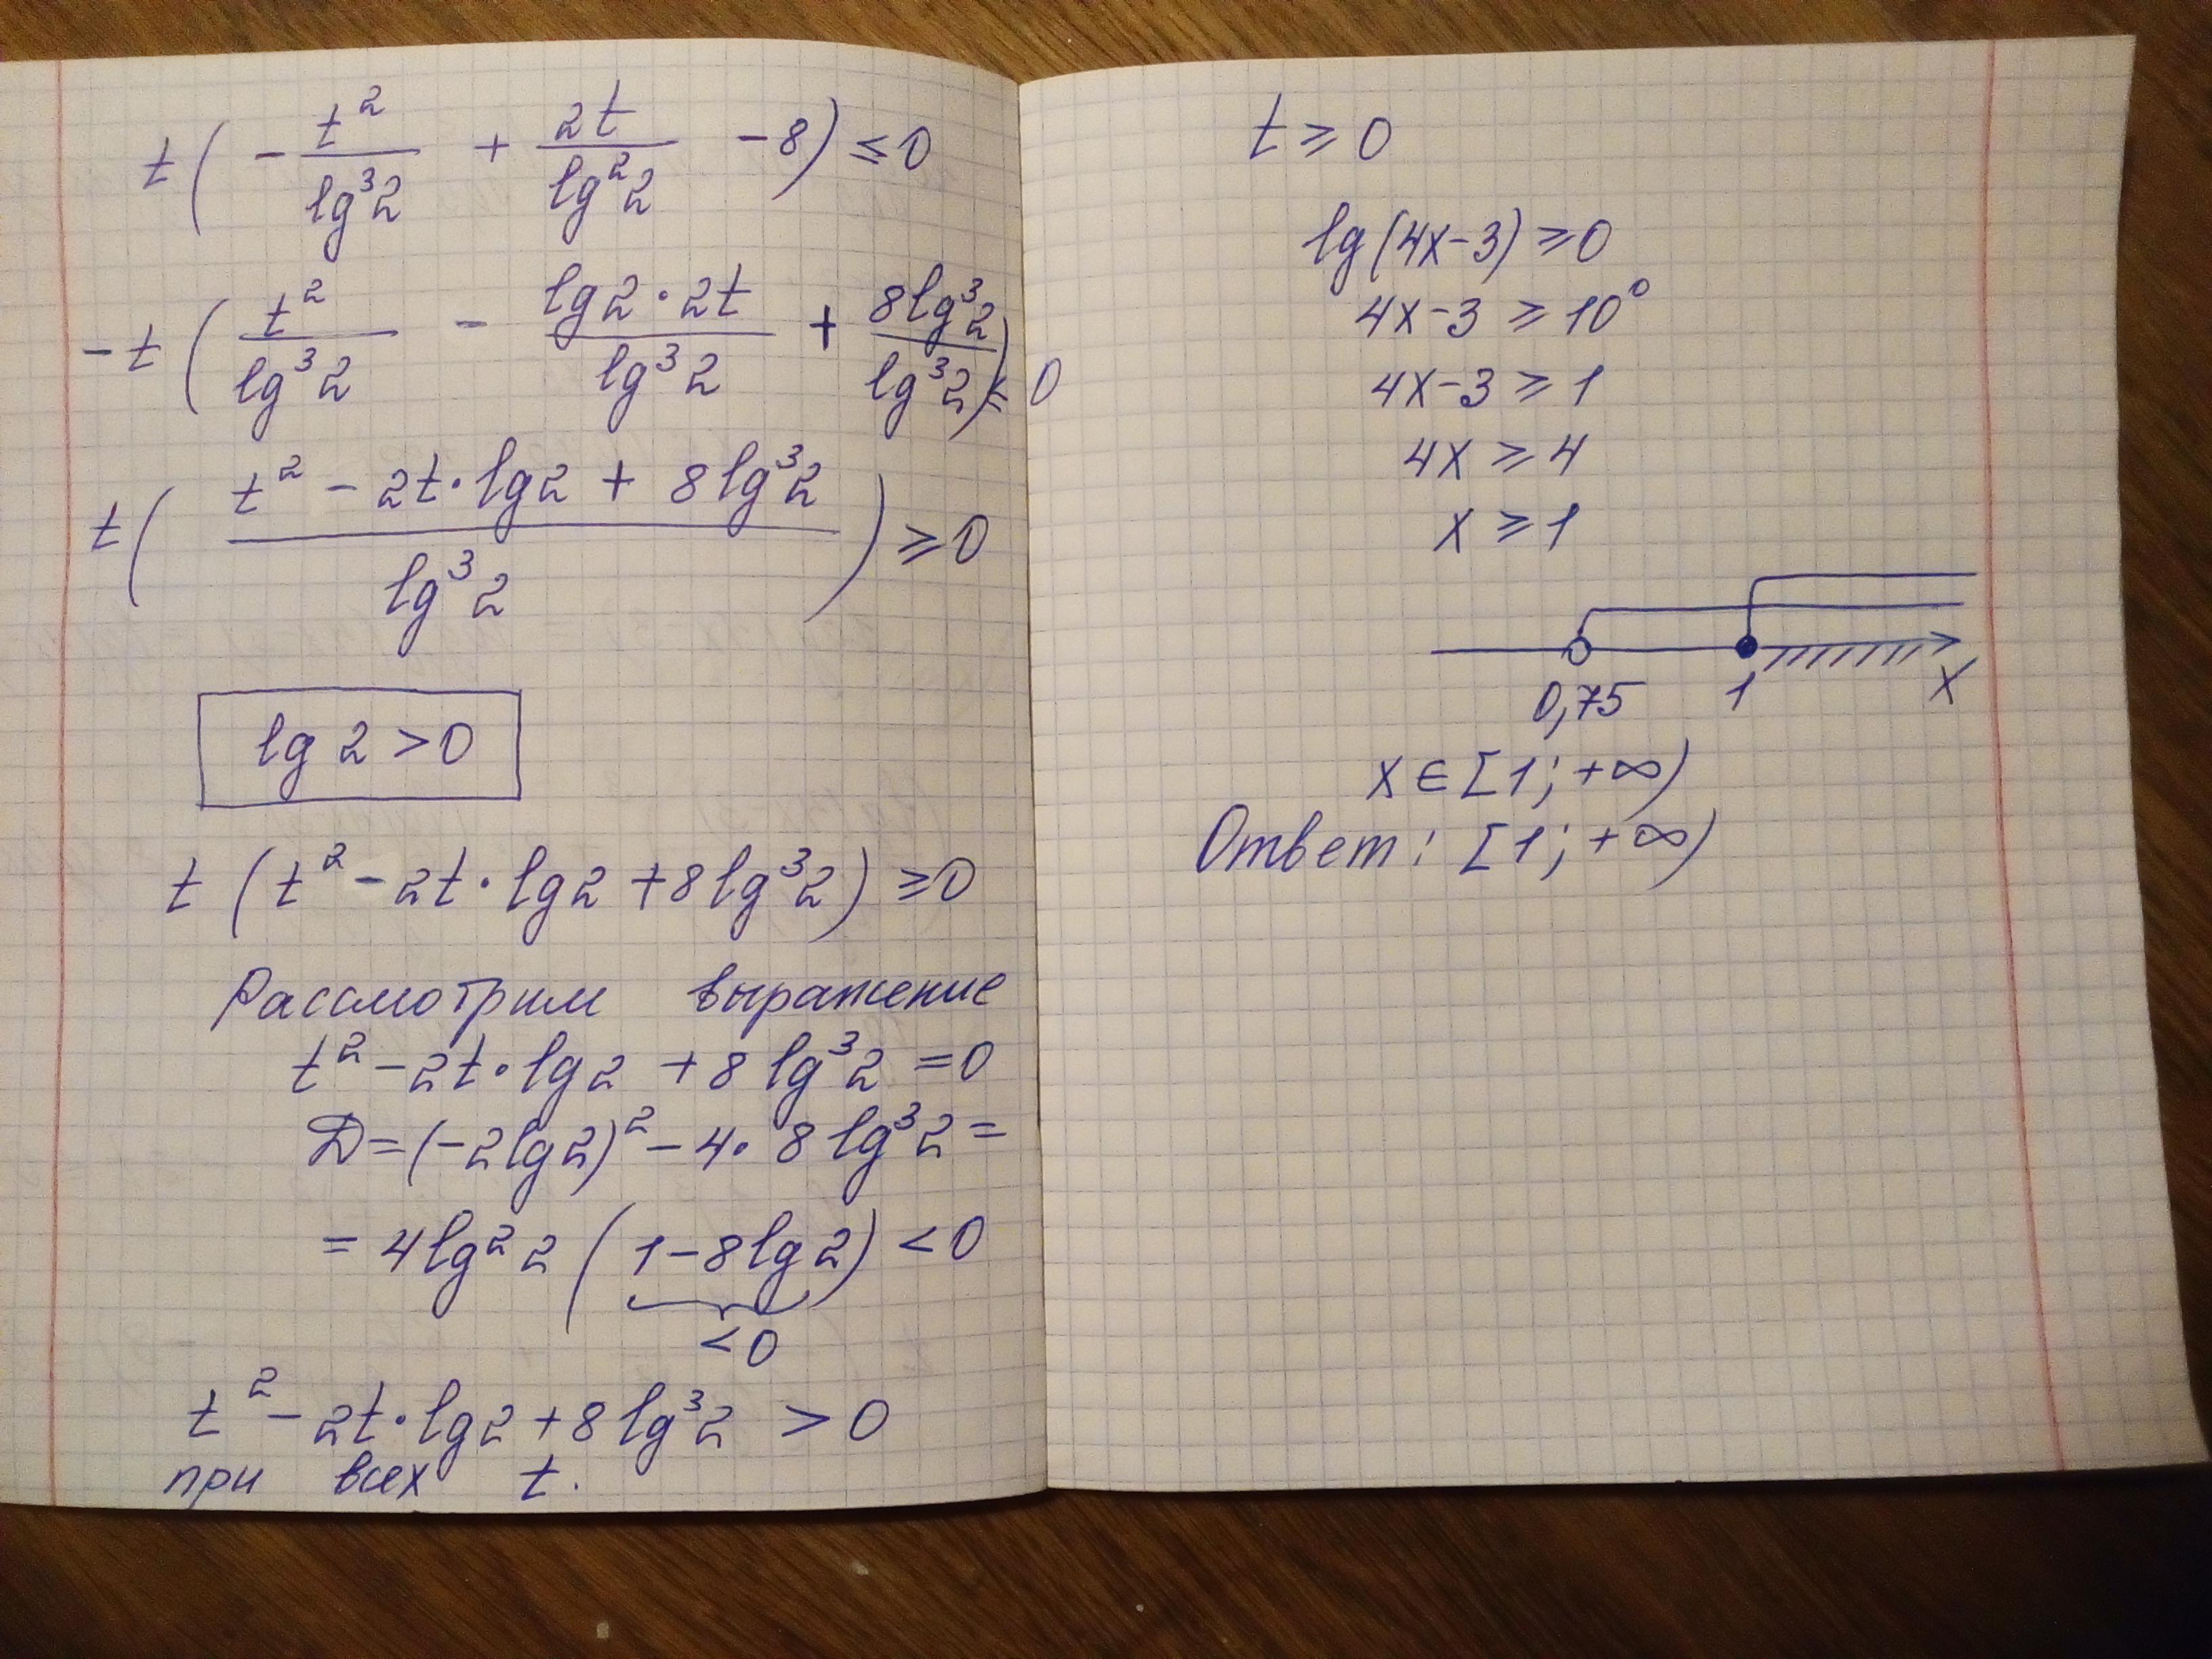 t ( - t²/lg³2 + 2t/lg²2 - 8 ) ≤ 0
- t ( t²/lg³2 - lg2·2t/lg³2 + 8lg³2/lg³2 ) ≤ 0
t ( (t² - 2t·lg2 + 8lg³2)/lg³2 ) ≥ 0
lg 2 > 0
t ( t² - 2t·lg2 + 8lg³2 ) ≥ 0
Рассмотрим выражение
t² - 2t·lg2 + 8lg³2 = 0
D = (-2lg2)² - 4·8lg³2 =
= 4lg²2 ( 1 - 8lg2 ) < 0
< 0
t² - 2t·lg2 + 8lg³2 > 0
при всех t.
t ≥ 0
lg(4x-3) ≥ 0
4x-3 ≥ 10⁰
4x-3 ≥ 1
4x ≥ 4
x ≥ 1
0,75 1 x
x ∈ [1; +∞)
Ответ: [1; +∞)